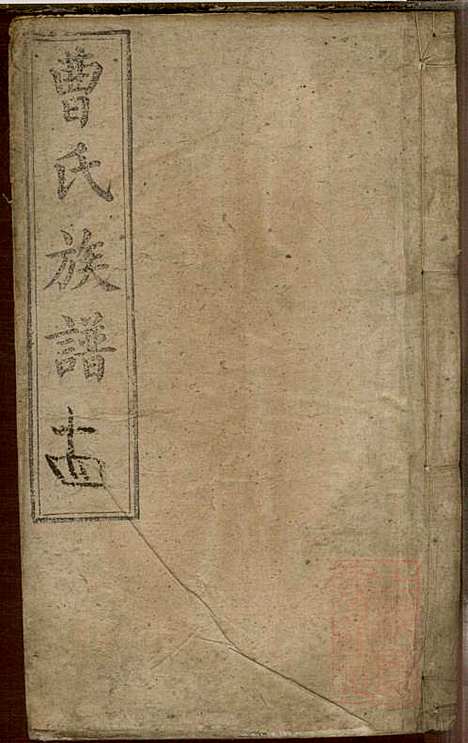 曹氏族譜
十四